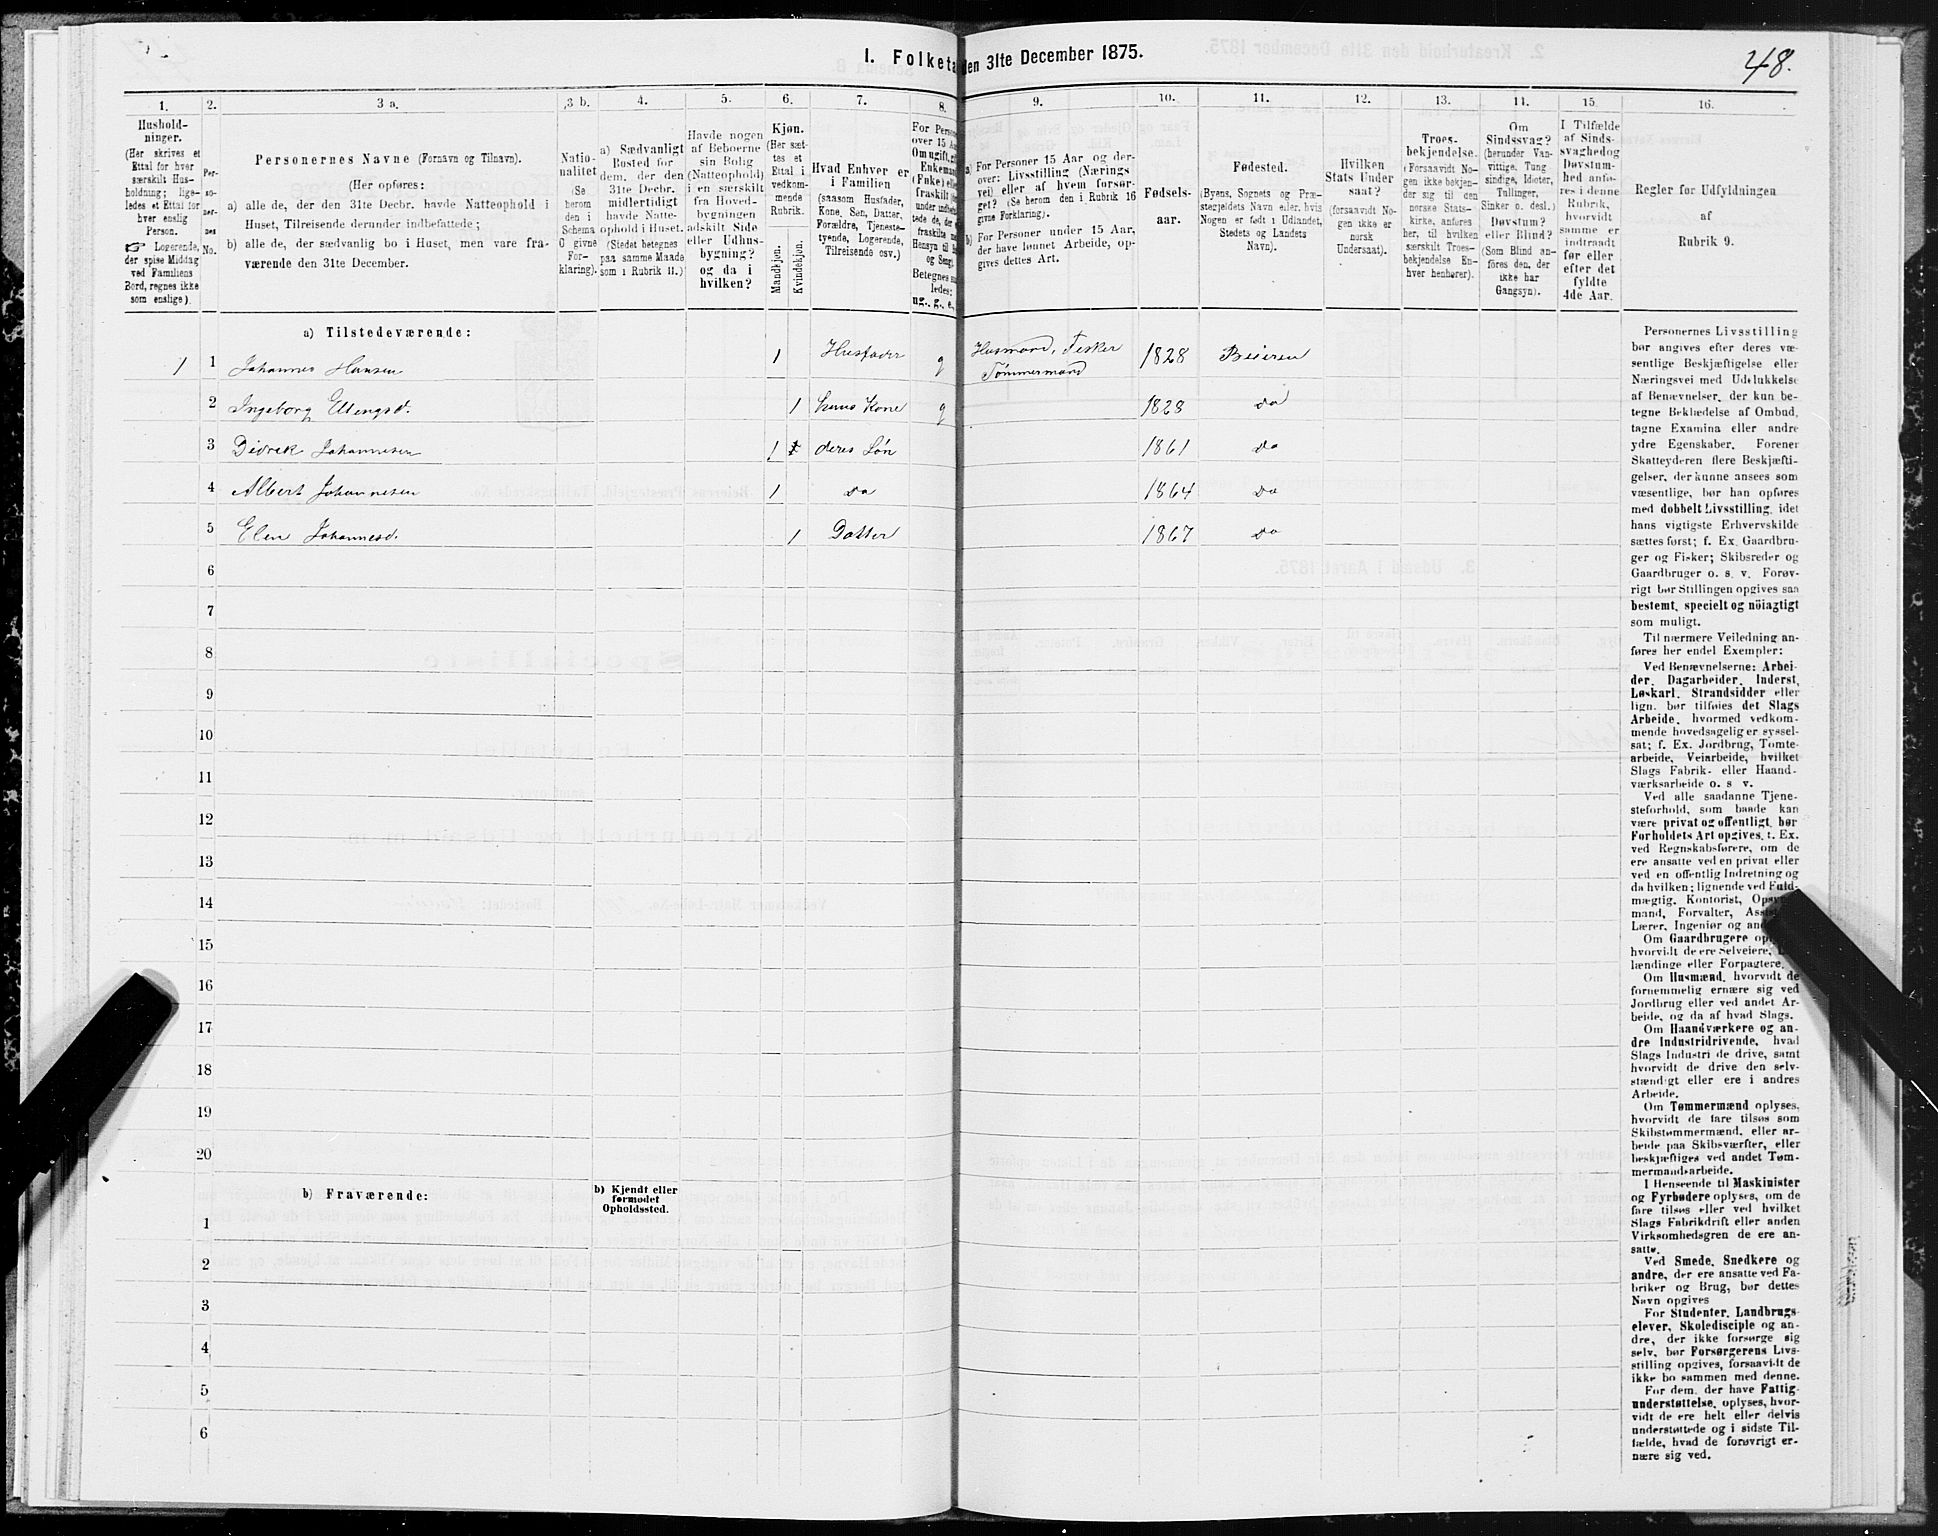 I. Folketa
den 31te December 1875.
48.
1.
Hushold-
ninger.
(Her skrives et
Ettal for hver
særskilt Hus-
holdning; lige-
ledes et Ettal for
hver enslig
Person.
☞ Logerende,
der spise Middag
ved Familiens
Bord, regnes ikke
som enslige).
2.
Per-
so-
ner-
nes
No.
3 a.
Personernes Navne (Fornavn og Tilnavn).
(Her opføres:
a) alle de, der den 31te Decbr. havde Natteophold i
Huset, Tilreisende derunder indbefattede;
b) alle de, der sædvanlig bo i Huset, men vare fra-
værende den 31te December.
3 b.
Natio-
nalitet
(Se
herom
den i
Schema
C givne
For-
klaring).
4.
a) Sædvanligt
Bosted for
dem, der den
31te Decbr.
midlertidigt
havde Natte-
ophold i Huset.
(Stedet betegnes
paa samme Maade
som i Rubrik 11.)
5.
Havde nogen
af Beboerne
sin Bolig
(Natteophold)
i en særskilt
fra Hoved-
bygningen
adskilt Side
eller Udhus-
bygning?
og da i
hvilken?
6.
Kjøn.
(Her sæt-
tes et
Ettal i
vedkom-
mende
Rubrik.
Mandkjøn.
Kvindekjøn.
7.
Hvad Enhver er
i Familien
(saasom Husfader,
Kone, Søn, Datter,
Forældre, Tjeneste-
tyende, Logerende,
Tilreisende osv.)
8.
For Person
over 15 Aa
Om ugift, gi
Enkeman
(Enke) elle
fraskilt
ledes;
ug., g., e.,
9.
a) For Personer 15 Aar og der-
over: Livsstilling (Nærings
vei) eller af hvem forsør-
get? (Se herom den i Rubrik 16
givne Forklaring).
b) For Personer under 15 Aar,
der have lønnet Arbeide, op-
gives dettes Art.
10.
Fødsels-
aar.
11.
Fødested.
(Byens, Sognets og Præ-
stegjeldets Navn eller, hvis
Nogen er født i Udlandet,
Stedets og Landets
Navn).
12.
Hvilken
Stats Under
saat?
(forsaavidt No-
gen ikke er
norsk
Undersaat).
13.
Troes-
bekjendelse.
(Forsaavidt No-
gen ikke bekjen-
der sig til den
norske Stats-
kirke, anføres
her, til hvilken
særskilt Troes-
bekjendelse En-
hver henhører).
14.
Om
Sindssvag?
(herunder Van-
vittige, Tung
sindige, Idioter,
Tullinger,
Sinker o. desl.)
Døvstum?
eller Blind?
(Som Blind an-
føres den, der
ikke har
Gangsyn).
15.
I Tilfælde
af Sinds-
svaghed og
Døvstum-
hed anfø-
res i denne
Rubrik,
hvorvidt
samme er
indtraadt
før eller
efter det
fyldte
4de Aar.
16.
Regler for Udfyldningen
af
Rubrik 9.
a) Tilstedeværende:
1 1 Johannes Hansen 1 Husfader g Husmand, Fisker 1828 Beieren
Tømmermand
2 Ingeborg Ellingsd. 1 hans Kone g 1828 do
3 Didrek Johannesen 1 deres Søn 1861 do
4 Albert Johannesen 1 do 1864 do
5 Elen Johannesd. 1 Datter 1867 do
6
7
8
9
10
11
12
13
14
15
16
17
18
19
20
b) Fraværende:
b) Kjendt eller
formodet
Opholdssted.
1
2
3
4
5
6
Personernes Livsstilling
bør angives efter deres væ-
sentlige Beskjæftigelse eller
Næringsvei med Udelukkelse
af Benævnelser, der kun be-
tegne Beklædelse af Ombud,
tagne Examina eller andre
ydre Egenskaber. Forener
Skatteyderen flere Beskjæfti-
gelser, der kunne ansees som
væsentlige, bør han opføres
med dobbelt Livsstilling, idet
hans vigtigste Erhvervskilde
sættes først; f. Ex. Gaardbru-
ger og Fisker; Skibsreder og
Gaardbruger o. s. v. Forøv-
rigt bør Stillingen opgives saa
bestemt, specielt og nöiagtigt
som muligt.
Til nærmere Veiledning an-
føres her endel Exempler:
Ved Benævnelserne: Arbei-
der, Dagarbeider, Inderst,
Løskarl, Strandsidder eller
lign. bør tilføies det Slags
Arbeide, hvormed vedkom-
mende hovedsagelig er syssel-
sat; f. Ex. Jordbrug, Tomte-
arbeide, Veiarbeide, hvilket
Slags Fabrik- eller Haand-
værksarbeide o. s. v.
Ved alle saadanne Tjene-
steforhold, som baade kan
være privat og offentligt, bør
Forholdets Art opgives, f. Ex.
ved Regnskabsførere, om de
ere ansatte ved en privat eller
ved en offentlig Indretning og
da hvilken; lignende ved Fuld-
mægtig, Kontorist, Opsyns-
mand, Forvalter, Assist
Lærer, Ingeniør og and
Om Gaardbrugere opl
hvorvidt de ere Selveiere,
lændinge eller Forpagtere.
Om Husmænd, hvorvidt de
fornemmelig ernære sig ved
Jordbrug eller ved andet Ar-
beide, og da af hvad Slags.
Om Haandværkere og an-
dre Industridrivende, hvad
Slags Industri de drive, samt
hvorvidt de drive den selv-
stændigt eller ere i andres
Arbeide.
Om Tømmermænd oplyses,
hvorvidt de fare tilsøs som
Skibstømmermænd, eller ar-
beide paa Skibsværfter, eller
beskjæftiges ved andet Tøm-
mermandsarbeide.
I Henseende til Maskinister
og Fyrbødere oplyses, om de
fare tilsøs eller ved hvilket
Slags Fabrikdrift eller anden
Virksomhedsgren de ere an-
satte.
Ved Smede, Snedkere og
andre, der ere ansatte ved Fa-
briker og Brug, bør dettes
Navn opgives
For Studenter, Landbrugs-
elever, Skoledisciple og an-
dre, der ikke forsørge sig
selv, bør Forsørgerens Livs-
stilling opgives, forsaavidt de
ikke bo sammen med denne.
For dem, der have Fattig-
understøttelse, oplyses, hvor-
vidt de ere helt eller delvis
understøttede og i sidste Til-
fælde, hvad de forøvrigt er-
nære sig ved.